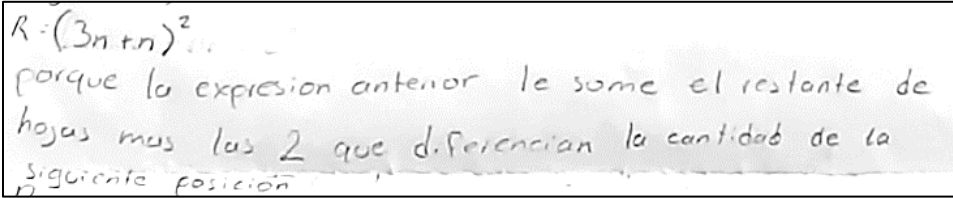 R:(3n+n)²
porque la expresion anterior le sume el restante de
hojas mas las 2 que diferencian la cantidad de la
siguiente posición